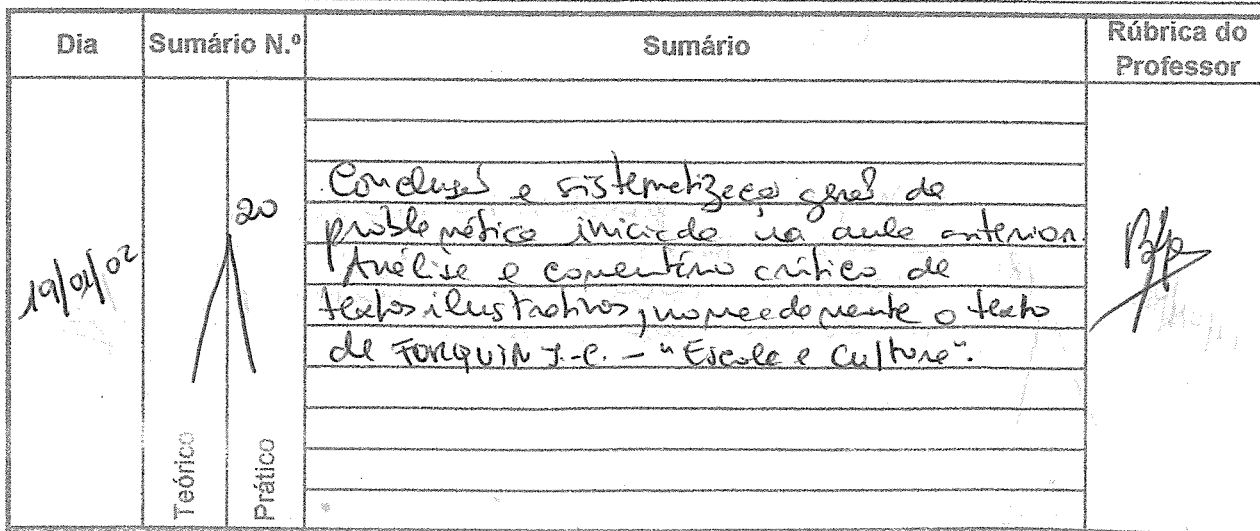 Dia Sumário N.º Sumário Rúbrica do Professor
19/01/02
20
Conclusão e sistematização geral da
problemática iniciada na aula anterior.
Análise e comentário crítico de
textos ilustrativos, nomeadamente o texto
de FORQUIN J.-C. – "Escola e Cultura".
Teórico
Prático